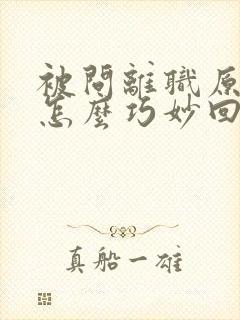 被問離職原
怎麼巧妙回
真船一雄